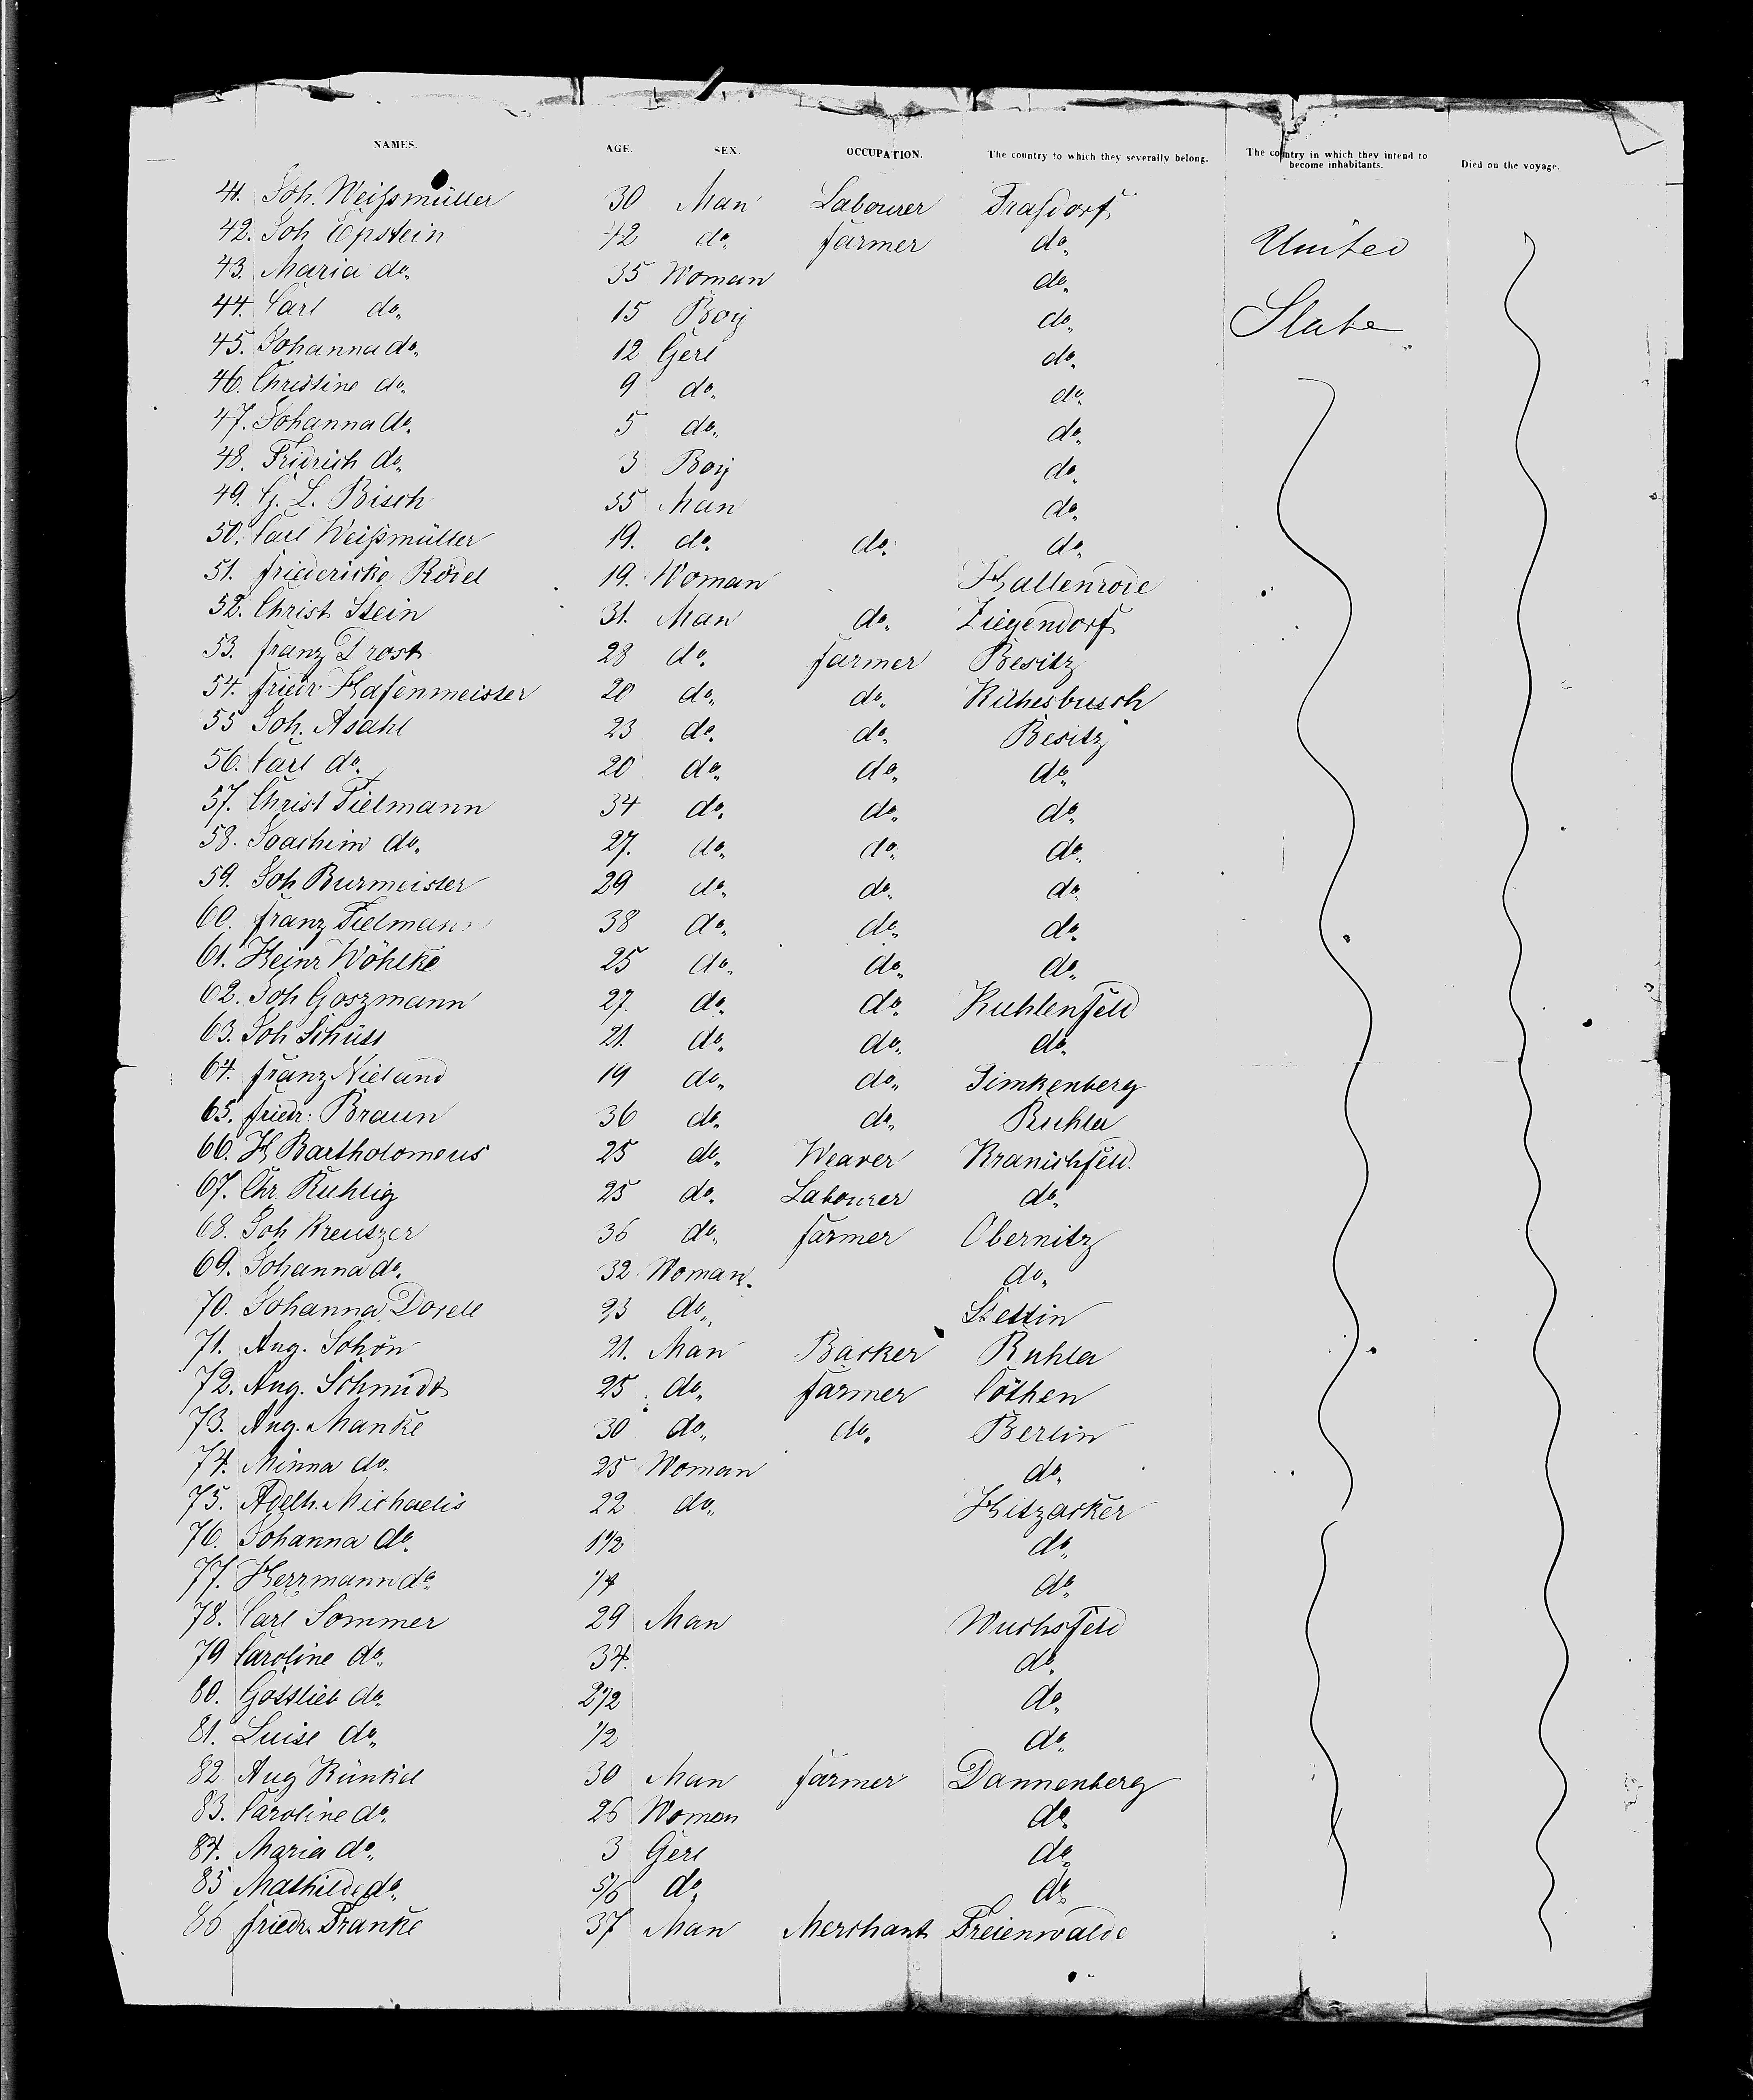 NAMES. AGE. SEX. OCCUPATION. The country to which they severally belong. The country in which they intend to become inhabitants. Died on the voyage.
41. Joh. Weißmüller 30 Man Labourer Trasdorf
42. Joh Epstein 42 do. farmer do. United
43. Maria do. 35 Woman do.
44. Carl do. 15 Boy do. State
45. Johanna do. 12 Gerl do.
46. Christine do. 9 do. do.
47. Johanna do. 5 do. do.
48. Fridrich do. 3 Boy do.
49. G. L. Bisch 35 Man do.
50. Carl Weißmüller 19. do. do. do.
51. Friedericke Rödel 19. Woman Hallenrode
52. Christ Stein 31. Man do. Ziegendorf
53. Franz Drost 28 do. farmer Besitz
54. Friedr. Hafenmeister 20 do. do.
55 Joh. Asahl 23 do. do. Besitz
56. Carl do. 20 do. do. do.
57. Christ Tielmann 34 do. do. do.
58. Joachim do. 27. do. do. do.
59. Joh Burmeister 29 do. do. do.
60. Franz Tielmann 38 do. do. do.
61. Heinr Wöhlke 25 do. do. do.
62. Joh Goszmann 27. do. do. Kuhlenfeld
63. Joh Schüss 21. do. do. do.
64. Franz Nieland 19 do. do. Simkenberg
65. Friedr: Braun 36 do. do. Ruhla
66. H Bartholomeus 25 do. Weaver Kranichfeld.
67. Chr. Ruhlig 25 do. Labourer do.
68. Joh Kreutzer 36 do. farmer Obernitz
69. Johanna do. 32 Woman. do.
70. Johanna Dorell 23 do. Stettin
71. Aug. Schön 21. Man Backer Ruhla
72. Aug. Schmidt 25 do. farmer Cöthen
73. Aug. Manke 30 do. do. Berlin
74. Minna do. 25 Woman do.
75. Adelh. Michaelis 22 do. Hitzacker
76. Johanna do. 1 1/2 do.
77. Herrmann do. 1/4 do.
78. Carl Sommer 29 Man Wuchsfeld
79 Caroline do. 34. do.
80. Gottlieb do. 2 1/2 do.
81. Luise do. 1/2 do.
82 Aug Künkel 30 Man farmer Dannenberg
83. Caroline do. 26 Woman do.
84. Maria do. 3 Gerl do.
85 Mathilde do. 5/6 do. do.
86 Friedr. Franke 37 Man Merchant Freienwalde